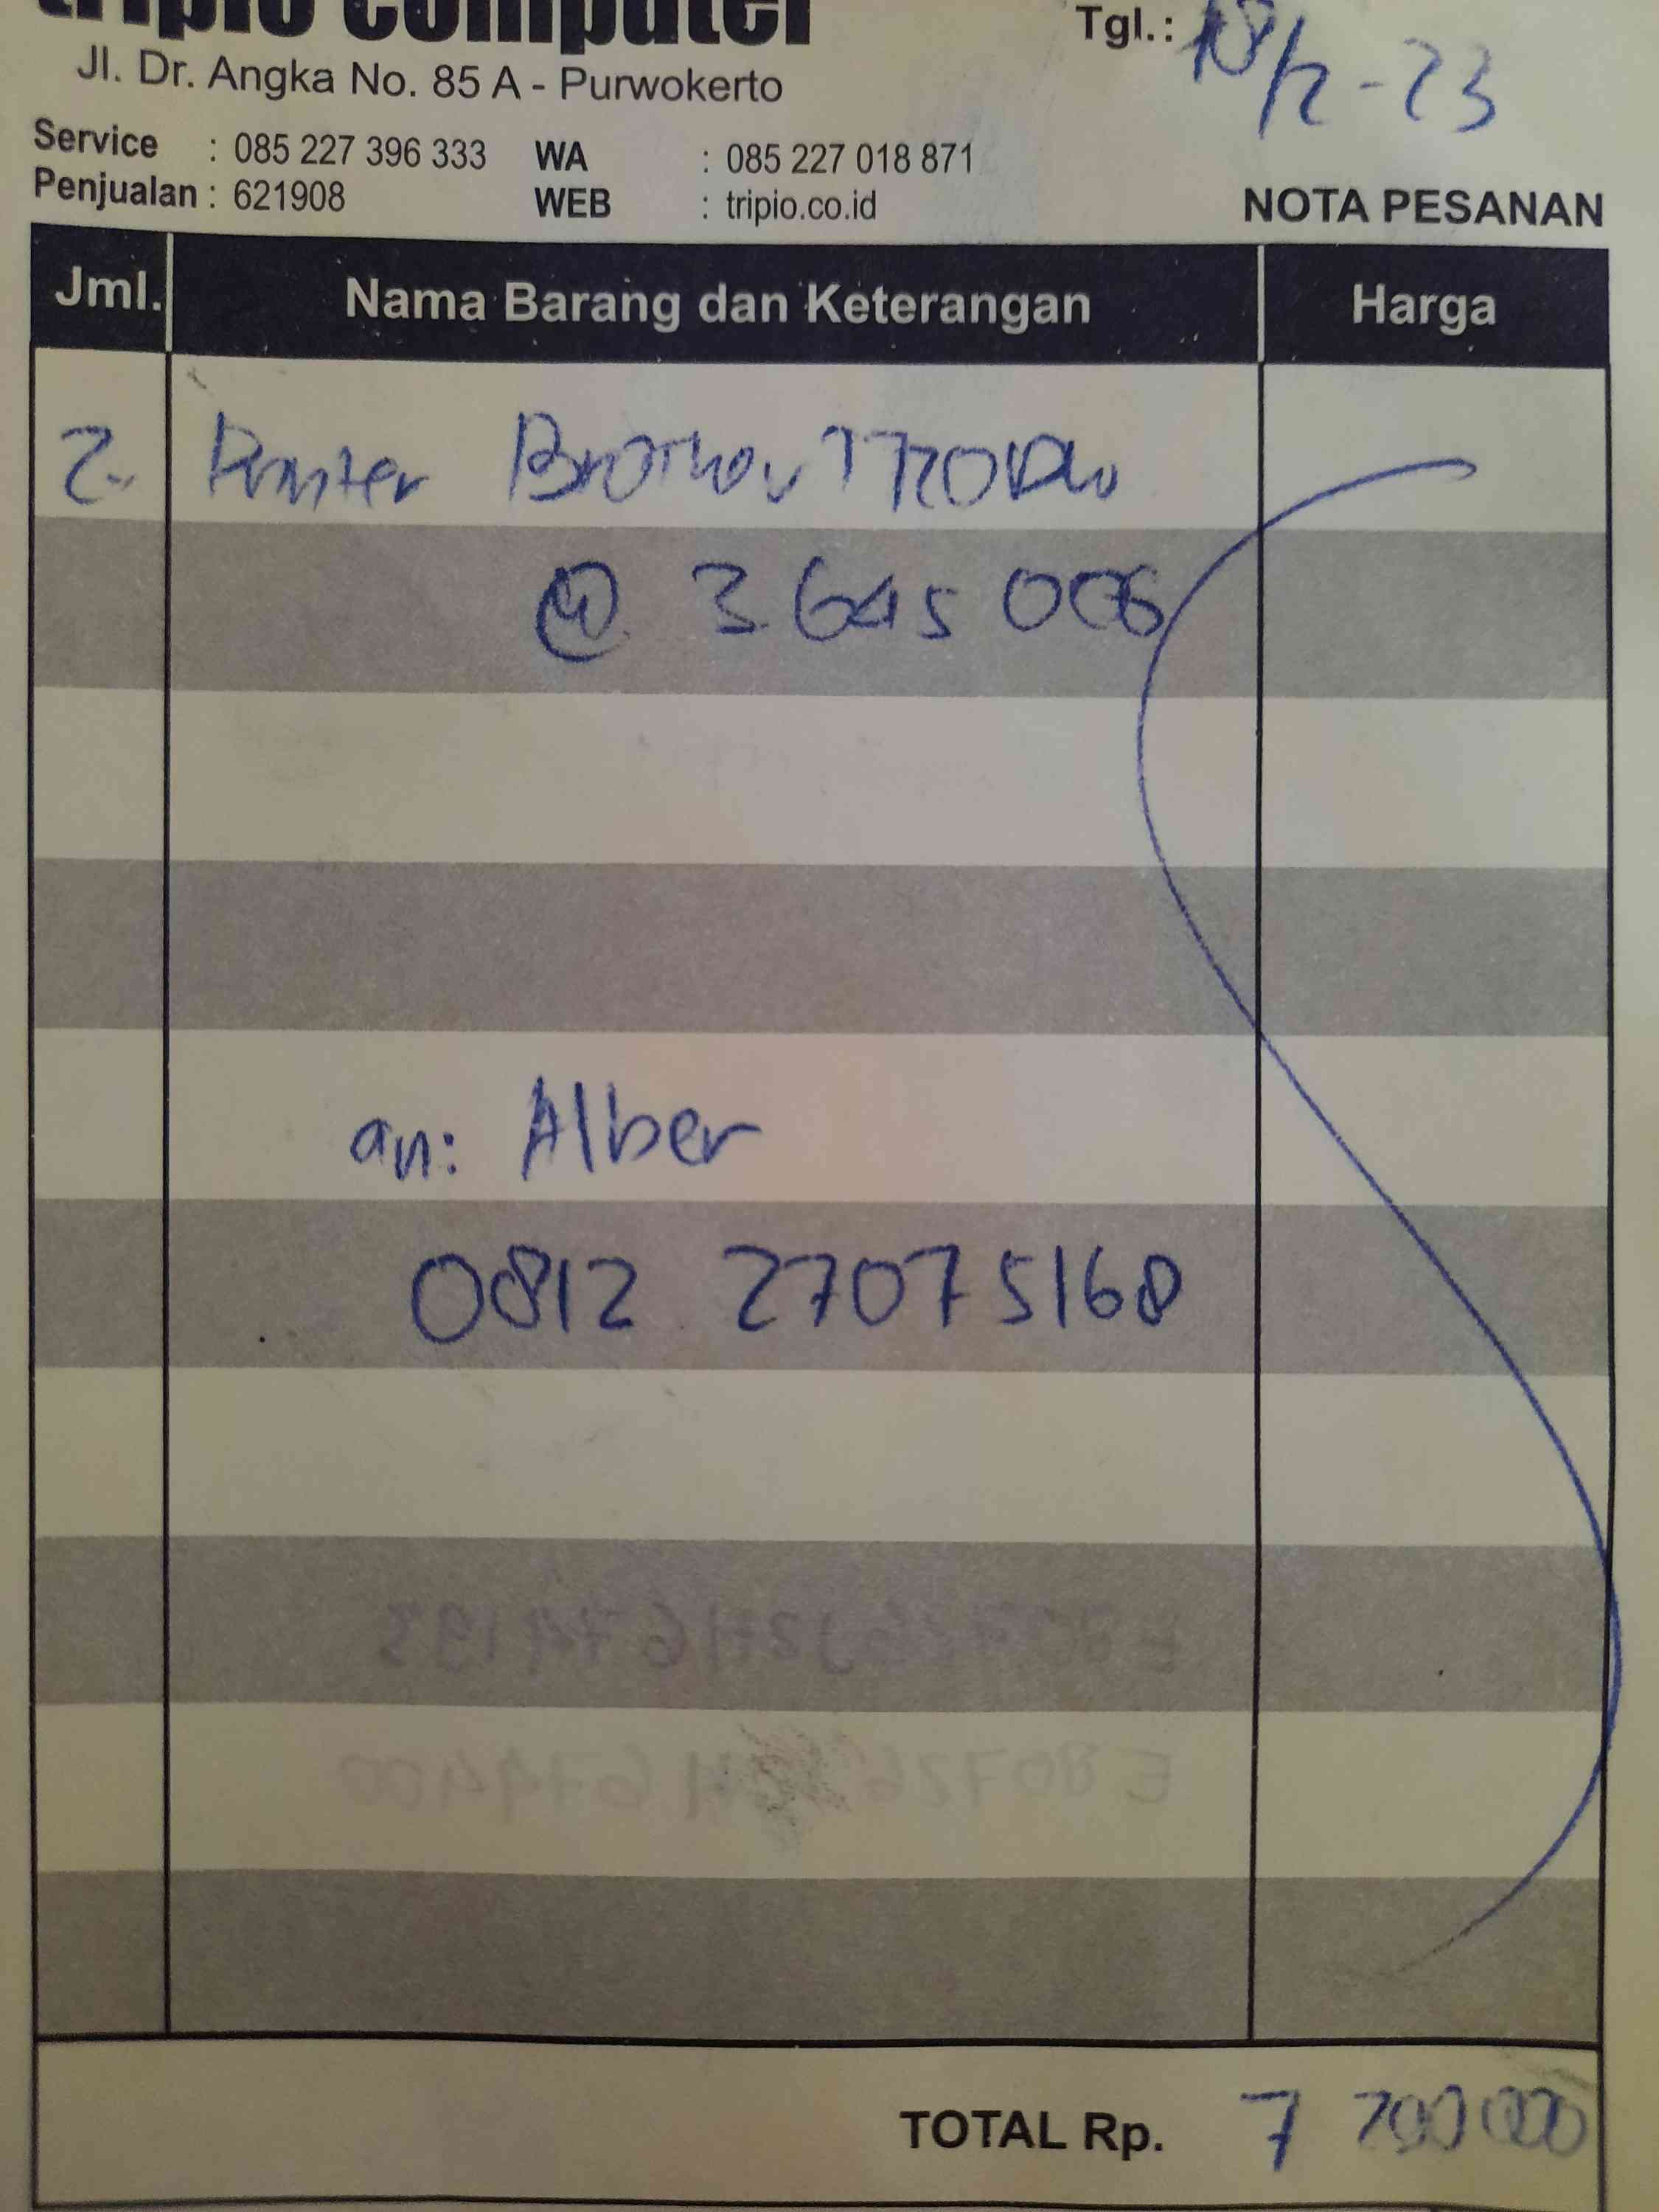 tripio computer
Jl. Dr. Angka No. 85 A - Purwokerto
Tgl.: 18/12-23
Service : 085 227 396 333 WA : 085 227 018 871
Penjualan : 621908 WEB : tripio.co.id
NOTA PESANAN
Jml. Nama Barang dan Keterangan Harga
2. Printer Brother T720DW
@ 3.645 000
an: Alber
0812 27075168
TOTAL Rp. 7 200 000